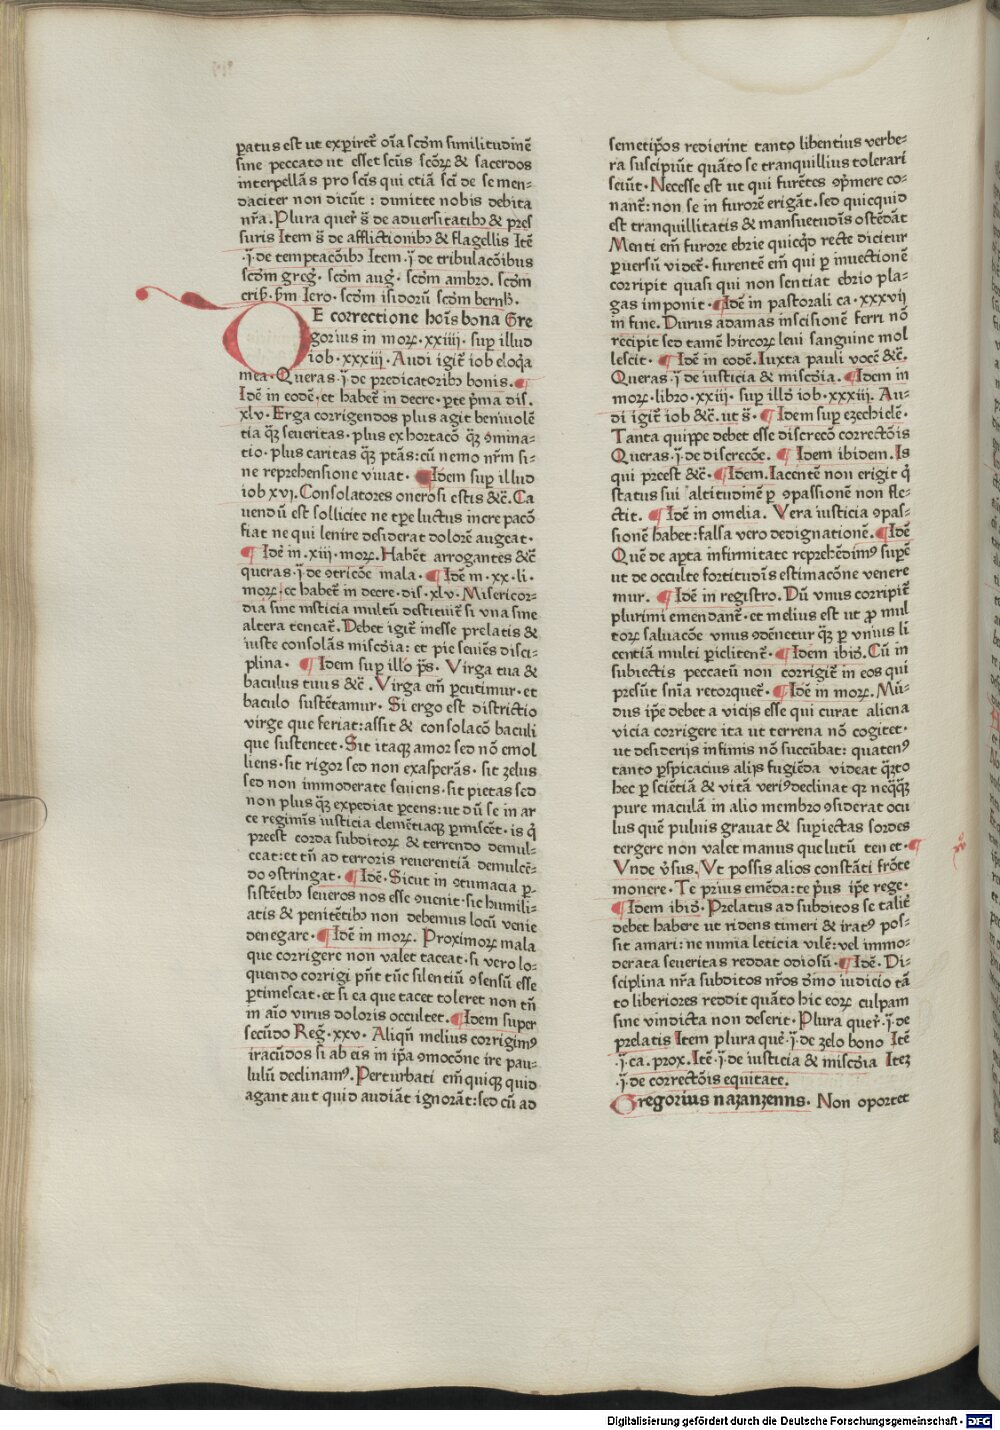 ꝑatus est ut experiret᷑ oĩa scd̃m similitudinẽ
sine peccato ut esset sc̃us sc̃oꝝ & sacerdos
interpellãs pro sc̃is qui etiã sc̃i de se men⸗
daciter non dicũt : dimitte nobis debita
nr̃a. Plura quer᷑ s̃ de aduersitatibꝫ & pres
suris Item s̃ de afflictionibꝫ & flagellis Itẽ
.j̃. de temptacõibꝫ Item .j̃. de tribulacõibus
scd̃m greg̃. scd̃m aug̃. scd̃m ambro. scd̃m
cris̃. scd̃m Iero. scd̃m isidorũ scd̃m bernh̃.
DE correctione hoĩs bona Gre
gorius in moꝝ. xxiiii. suꝑ illud
iob. xxxiij. Audi igit᷑ iob eloq̃a
mea. Queras .j̃. de predicatoribꝫ bonis. ¶
Idẽ in eodẽ. et habet᷑ in decre. ꝑte pͥma dis.
xlv. Erga corrigendos plus agit beniuolẽ
tia qꝫ̃ seueritas. plus exhortacõ qꝫ̃ ꝯmina⸗
tio. plus caritas qꝫ̃ ptãs: cũ nemo nr̃m si⸗
ne reprehensione viuat. ¶ Idem suꝑ illud
iob xvj. Consolatores onerosi estis &c̃. Ca
uendũ est sollicite ne tꝑe luctus increpacõ
fiat ne qui lenire desiderat dolorẽ augeat.
¶ Idẽ in .xiij. moꝝ. Habẽt arrogantes &c̃
queras .j̃. de ꝯtricõe mala. ¶ Idẽ in .xx. li.
moꝝ. et habet᷑ in decre. dis. xlv. Misericor⸗
dia sine iusticia multũ destituit᷑ si vna sine
altera teneat᷑. Debet igit᷑ inesse prelatis &
iuste consolãs misc̃dia: et pie seuiẽs disci⸗
plina. ¶ Idem suꝑ illo p̃s. Virga tua &
baculus tuus &c̃. Virga em̃ ꝑcutimur. et
baculo sustẽtamur. Si ergo est districtio
virge que feriat: assit & consolacõ baculi
que sustentet. Sit itaqꝫ amor sed nõ emol
liens. sit rigor sed non exasperãs. sit zelus
sed non immoderate seuiens. sit pietas sed
non plus qꝫ̃ expediat ꝑcens: ut dũ se in ar
ce regimĩs iusticia clemẽtiaqꝫ ꝑmiscet᷑. is q̃
preest corda subditoꝝ & terrendo demul⸗
ceat: et tñ ad terroris reuerentiã demulcẽ⸗
do ꝯstringat. ¶ Idẽ. Sicut in ꝯtumacia ꝑ⸗
sistẽtibꝫ seueros nos esse ꝯuenit. sic humili⸗
atis & penitẽtibꝫ non debemus locũ venie
denegare. ¶ Idẽ in moꝝ. Proximoꝝ mala
que corrigere non valet taceat. si vero lo⸗
quendo corrigi pñt tũc silentiũ ꝯsensũ esse
ꝑtimescat. et si ea que tacet toleret non tñ
in aĩo virus doloris occultet. ¶ Idem super
secũdo Reg̃. xxv. Aliqñ melius corrigimꝰ
iracũdos si ab eis in ip̃a ꝯmocõne ire pau⸗
lulũ declinamꝰ. Perturbati em̃ quiqꝫ quid
agant aut quid audiãt ignorãt: sed cũ ad
semetip̃os redierint tanto libentius verbe⸗
ra suscipiũt quãto se tranquillius tolerari
sciũt. Necesse est ut qui furẽtes op̃mere co⸗
nant᷑: non se in furorẽ erigãt. sed quicquid
est tranquillitatis & mansuetudĩs ostẽdãt
Menti em̃ furore ebrie quicq̃d recte dicitur
ꝑuersũ videt᷑. furentẽ em̃ qui ꝑ inuectionẽ
corripit quasi qui non sentiat ebrio pla⸗
gas imponit. ¶ Idẽ in pastorali ca. xxxvij
in fine. Durus adamas inscisionẽ ferri nõ
recipit sed tamẽ hircoꝝ leui sanguine mol
lescit. ¶ Idẽ in eodẽ. Iuxta pauli vocẽ &c̃.
Queras .j̃. de iusticia & misc̃dia. ¶ Idem in
moꝝ. libro. xxiij. suꝑ illd̃ iob .xxxiij. Au⸗
di igit᷑ iob &c̃. ut s̃. ¶ Idem suꝑ ezechielẽ.
Tanta quippe debet esse discrecõ correctõis
Queras .j̃. de discrecõe. ¶ Idem ibidem. Is
qui preest &c̃. ¶ Idem. Iacentẽ non erigit q̃
status sui altitudinẽ ꝑ ꝯpassionẽ non fle⸗
ctit. ¶ Idẽ in omelia. Vera iusticia ꝯpas⸗
sionẽ habet: falsa vero dedignationẽ. ¶ Idẽ
Quẽ de aꝑta infirmitate reprehẽdimꝰ suꝑẽ
ut de occulte fortitudĩs estimacõne venere
mur. ¶ Idẽ in registro. Dũ vnus corripit᷑
plurimi emendant᷑. et melius est ut ꝓ mul
toꝝ saluacõe vnus ꝯdẽnetur qꝫ̃ ꝑ vnius li
centiã multi ꝑiclitent᷑. ¶ Idem ibid̃. Cũ in
subiectis peccatũ non corrigit᷑ in eos qui
presũt sñia retorquet᷑. ¶ Idẽ in moꝝ. Mũ⸗
dus ip̃e debet a vicijs esse qui curat aliena
vicia corrigere ita ut terrena nõ cogitet.
ut desiderijs infimis nõ succũbat: quatenꝰ
tanto ꝑspicacius alijs fugiẽda videat qꝫ̃to
hec ꝑ sciẽtiã & vitã veriꝰ declinat qꝛ neqꝫ̃qꝫ̃
pure maculã in alio membro ꝯsiderat ocu
lus quẽ puluis grauat & suꝑiectas sordes
tergere non valet manus que lutũ tenet. ¶
Vnde v̾sus. Vt possis alios constãti frõte
monere. Te prius emẽda: te p̾us ip̃e rege.
¶ Idem ibid̃. Prelatus ad subditos se talit᷑
debet habere ut ridens timeri & iratꝰ pos⸗
sit amari: ne nimia leticia vilẽ: vel immo⸗
derata seueritas reddat odiosũ. ¶ Idẽ. Di⸗
sciplina nr̃a subditos nr̃os d̃mo iudicio tã
to liberiores reddit quãto hic eoꝝ culpam
sine vindicta non deserit. Plura quer᷑ .j̃. de
prelatis Item plura que᷑ .j̃. de zelo bono Itẽ
.j̃. ca. prox. Itẽ .j̃. de iusticia & misc̃dia Iteꝫ
.j̃. de correctõis equitate.
Gregorius nazanzenns. Non oportet
Digitalisierung gefördert durch die Deutsche Forschungsgemeinschaft - DFG